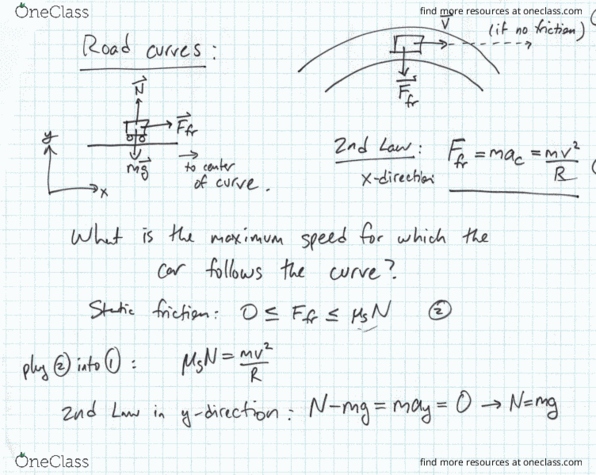 OneClass
find more resources at oneclass.com
Road curves:
V
(if no friction)
F⃗fr
N⃗
F⃗fr
mg⃗
→ to center of curve.
y
x
2nd Law: Ffr = mac = mv²/R
x-direction
What is the maximum speed for which the
car follows the curve?
Static friction: 0 ≤ Ffr ≤ μsN ②
plug ② into ①: μsN = mv²/R
2nd Law in y-direction: N-mg = may = 0 → N=mg
OneClass
find more resources at oneclass.com